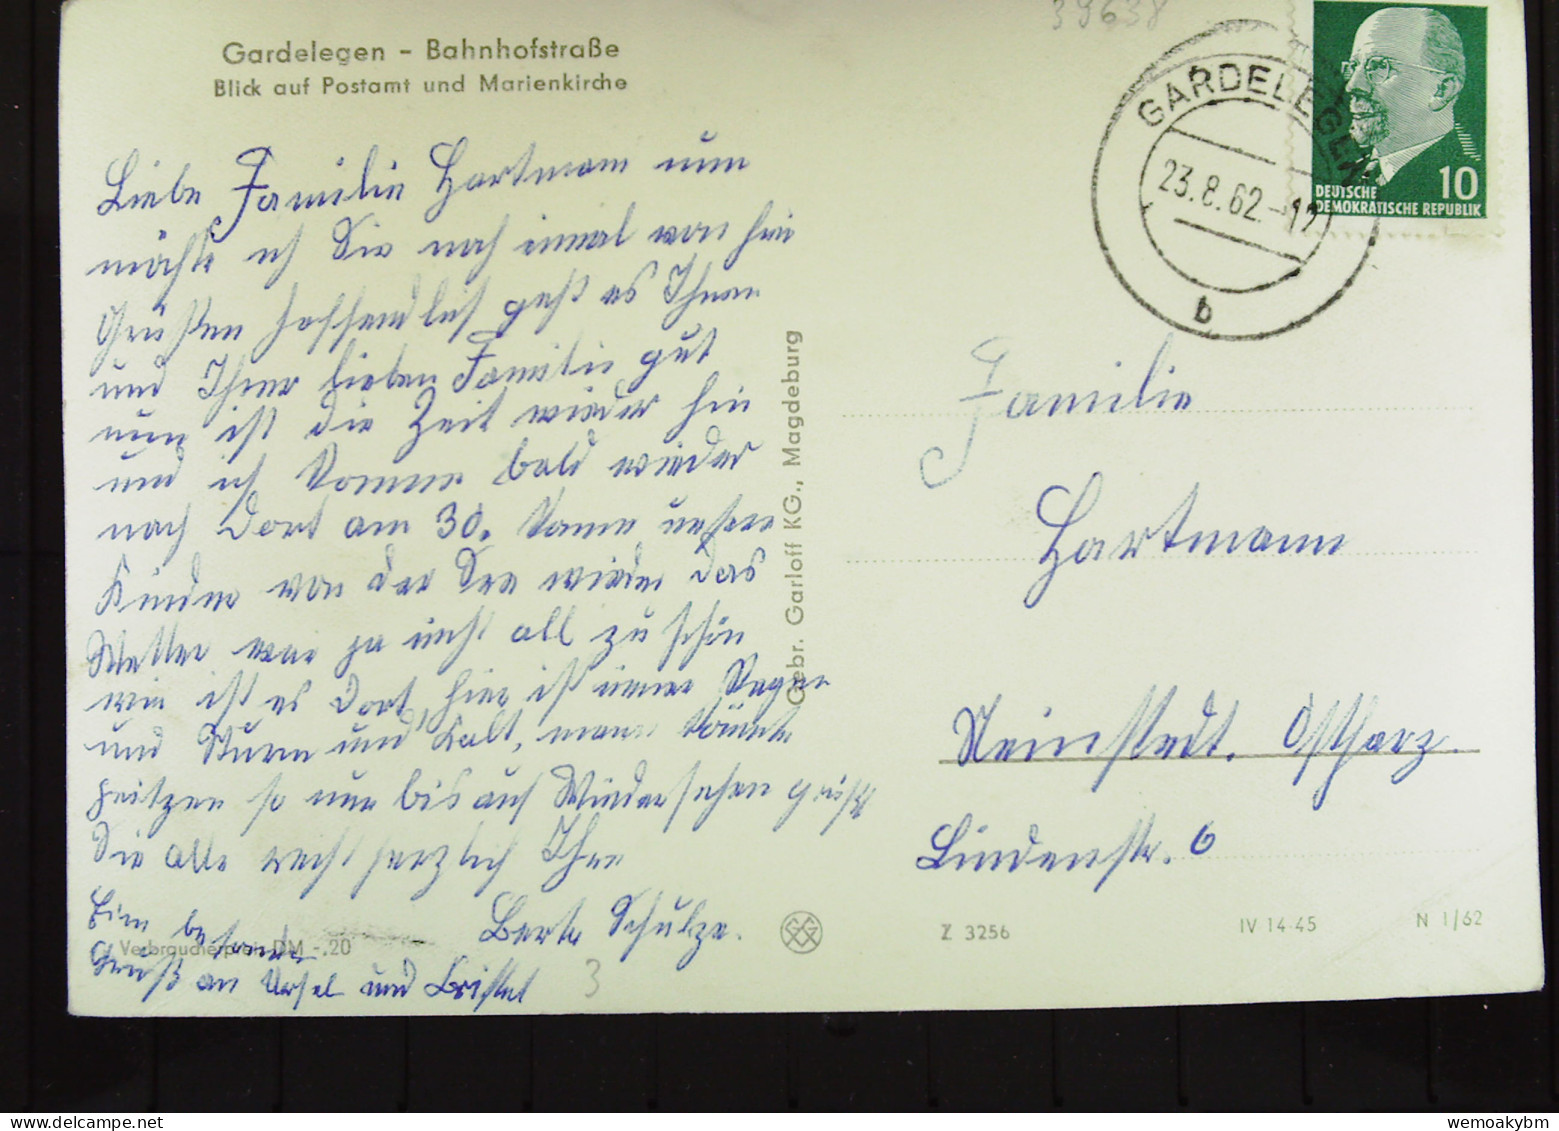 39638
Gardelegen – Bahnhofstraße
Blick auf Postamt und Marienkirche
Liebe Familie Hartmann nun
möchte ich Sie noch einmal von hir
Grüßen hoffendlich geht es Ihnen
und Ihrer lieben Familie gut
nun ist die Zeit wieder hin
und ich komme bald wieder
nach Dort am 30. kamm unsere
Kinder von der See wieder das
Wetter war ja nicht all zu schön
wie ist es Dort, hier ist immer Regen
und Sturm und Kalt, mann könnte
heitzen so nun bis auf Wiedersehen grüßt
Sie alle recht herzlich Ihre
Berta Schulze.
Ein besonder
Gruß an Ursel und Cristel
Verbraucherpreis DM -.20
3
Gebr. Garloff KG., Magdeburg
GARDELEGEN
23.8.62.-12
b
10
DEUTSCHE
DEMOKRATISCHE REPUBLIK
Familie
Hartmann
Neinstedt. Ostharz.
Lindenstr. 6
Z 3256
IV 14-45
N 1/62
wemoakybm